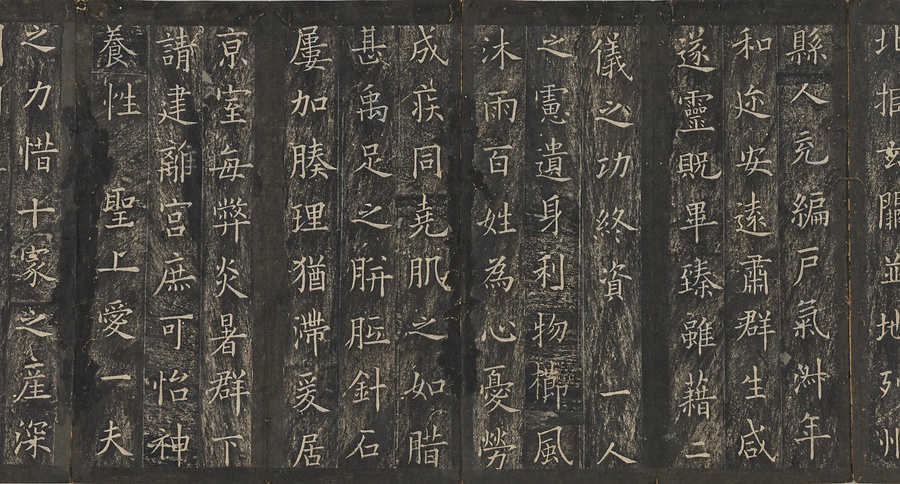 北拒玄闕並地列州
縣人充編戶氣淑年
和迩安遠肅群生咸
遂靈貺畢臻雖藉二
儀之功終資一人
之慮遺身利物櫛風
沐雨百姓為心憂勞
成疾同堯肌之如腊
甚禹足之胼胝針石
屢加腠理猶滯爰居
京室每弊炎暑群下
請建離宮庶可怡神
養性聖上愛一夫
之力惜十家之產深